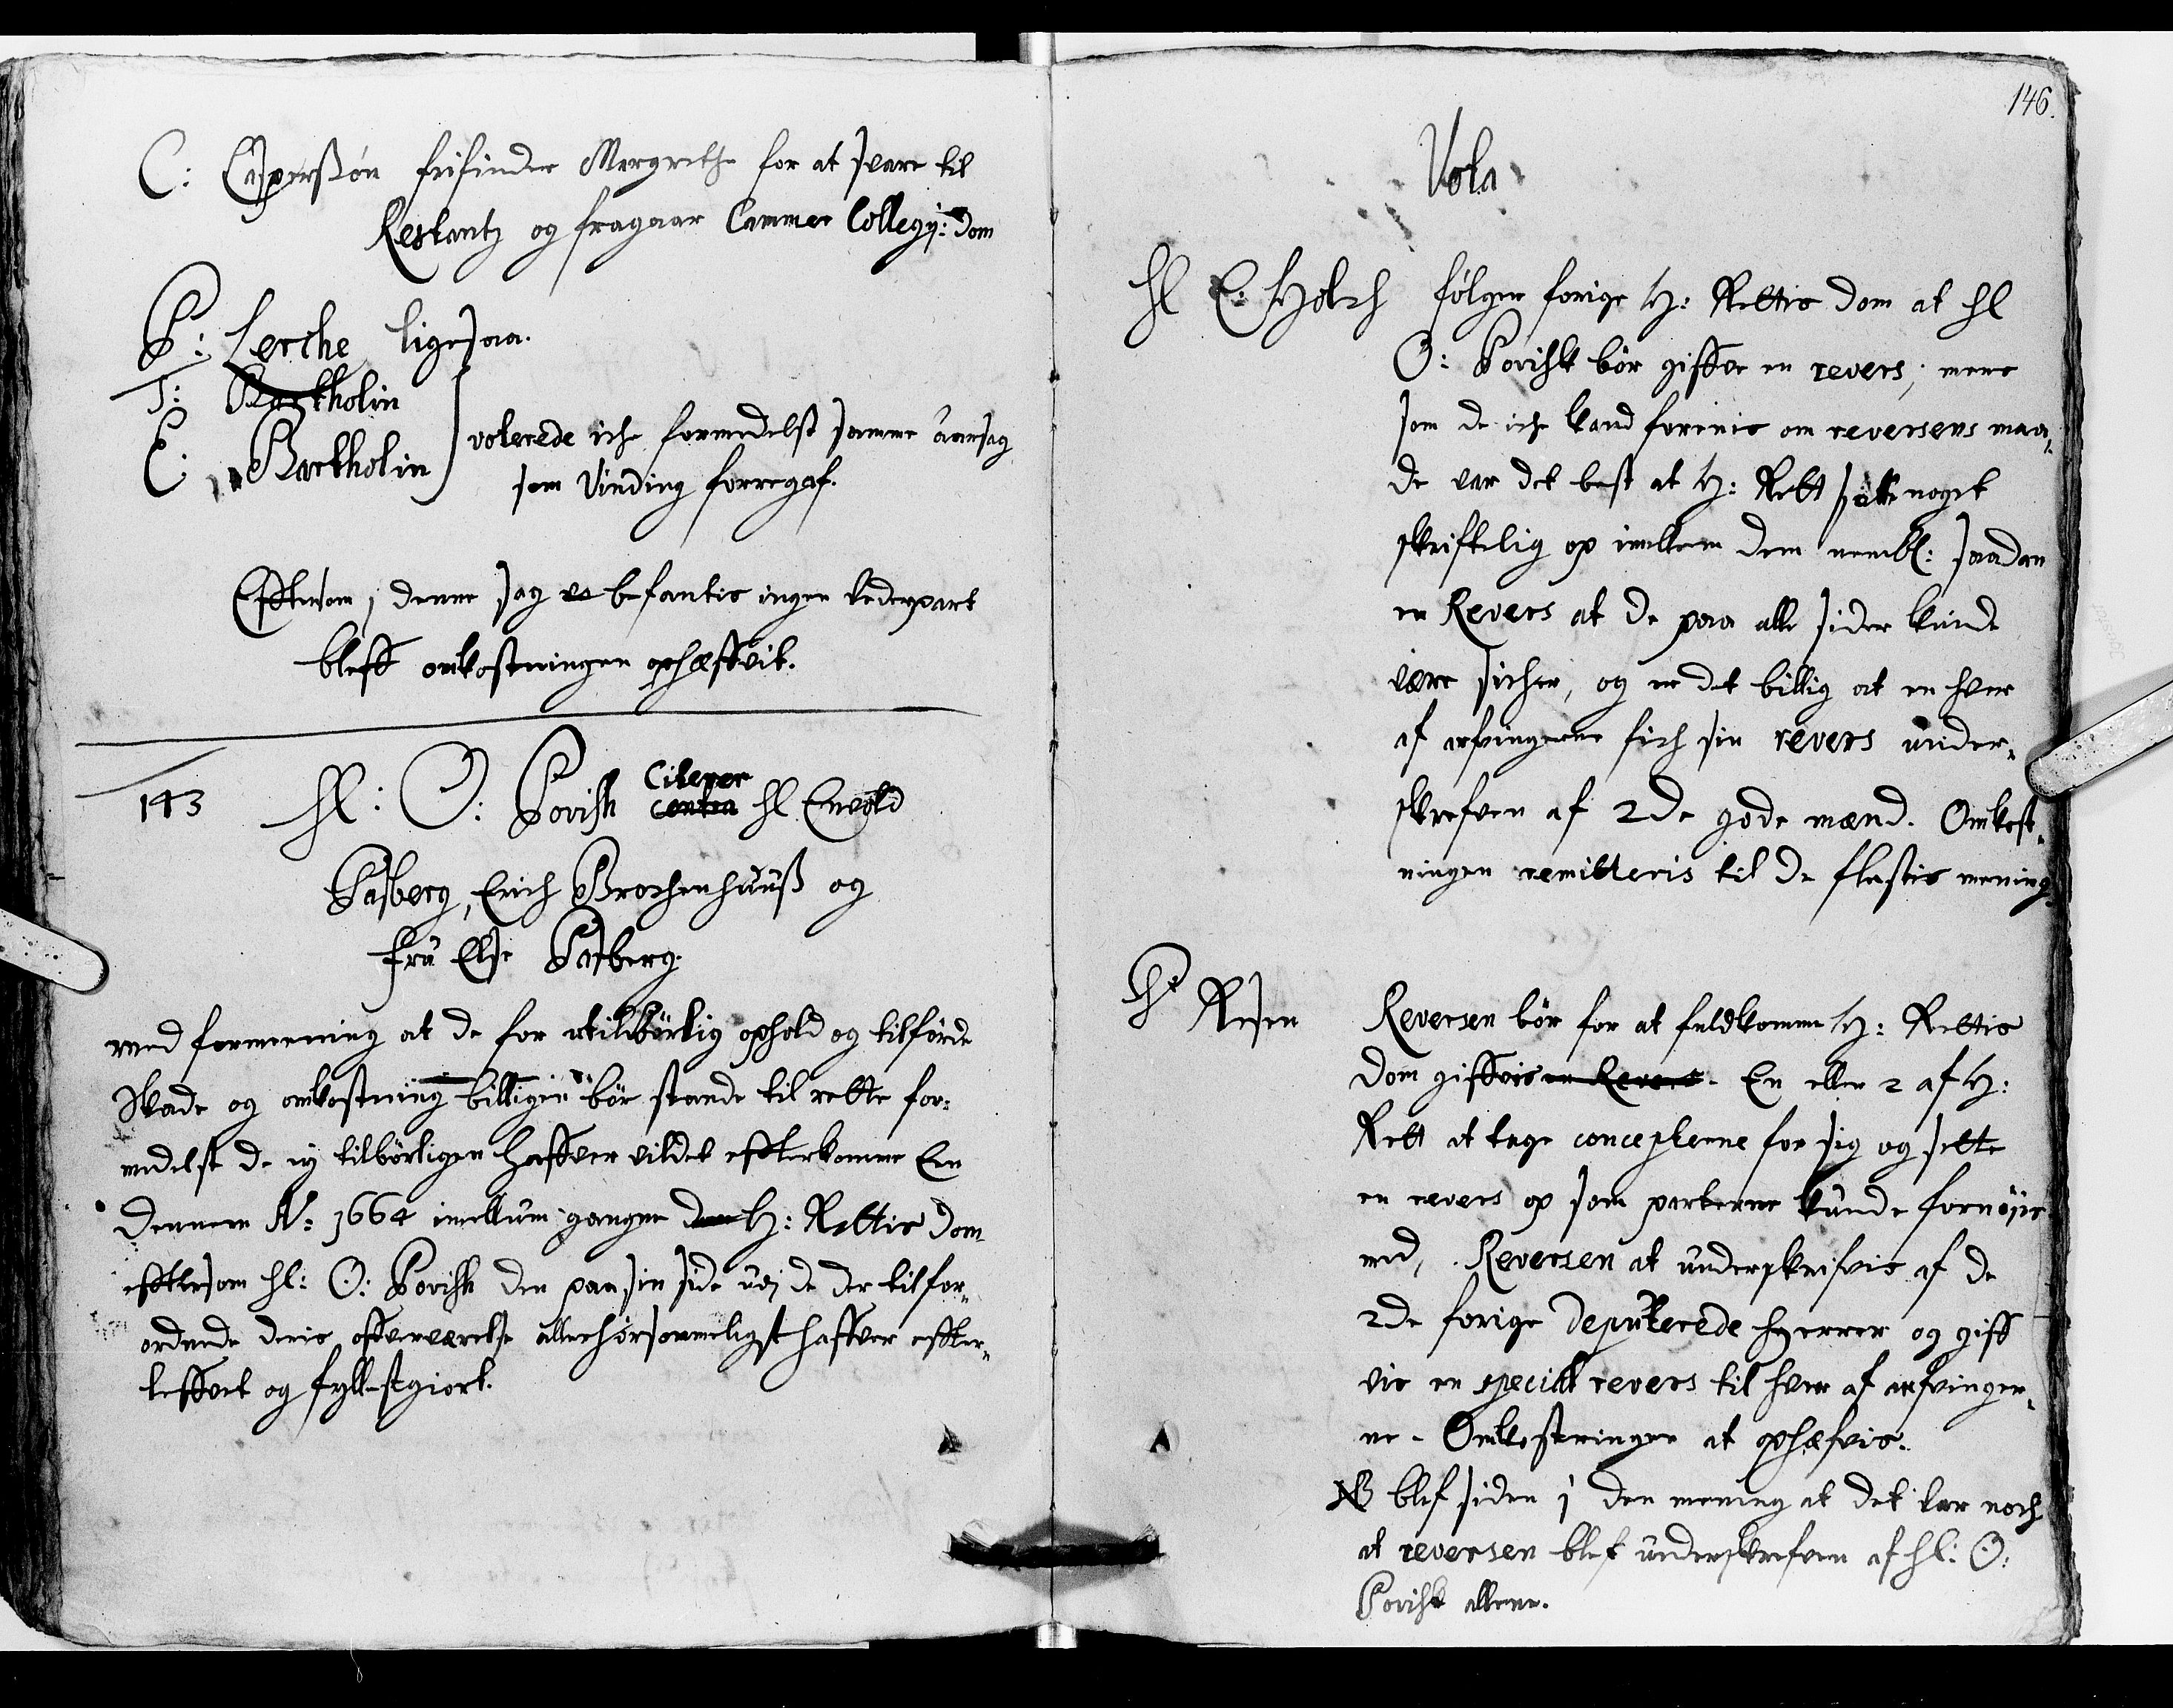 C: Casperßøn frifinder Margrethe for at svare til
Restantz og fragaar Cammer Collegij: dom
P: Lerche ligesaa.
T: Bartholin
E: Bartholin voterede iche formedelst samme aarsag
som Vinding forregaf.
Efftersom j denne sag befantis ingen vederpart
bleff omkostningen ophæffvit.
143
Hl: O: Povisk Citerer contra Hl Envold
Parsberg, Erich Brochenhuuß og
Fru Else Parsberg.
med formeening at de for utilbørlig ophold og tilføede
skade og omkostning billigen bør stande til rette for-
medelst de ej tilbørligen haffver vildet effterkomme Een
dennem A: 1664 imellum gangne H: Rettis dom
efftersom Hl: O: Povisk den paa sin side udj de der tilfor-
ordnede deris offverværelse allerhørsommeligst haffver effter-
leffvet og fyllestgiort.
146.
Vota
Hl C: Holch følger forige H: Rettis dom at Hl
O: Povisk bør giffve en revers; mens
som de iche kand foreenis om reversens maa-
de var det best at H: Rett satte noget
skriftelig op imellem dem nembl: saadan
en Revers at de paa alle sider kunde
være sicher, og er det billig at en hver
af arfvingerne fich sin revers under-
skrefven af 2de gode mænd. Omkost-
ningen remitteris til de fleestis mening.
Hr Resen Reversen bør for at fuldkomme H: Rettis
dom giffvis en Revers. En eller 2 af H:
Rett at tage concepterne for sig og sette
en revers op som parterne kunde fornøjes
med, Reversen at underskrifvis af de
2de forige deputerede Herrer og giff
vis en special revers til hver af arfvinger-
ne. Omkostningen at ophæfvis.
NB blef siden i den mening at det var noch
at reversen blef underskrefven af Hl: O:
Povisk allene.